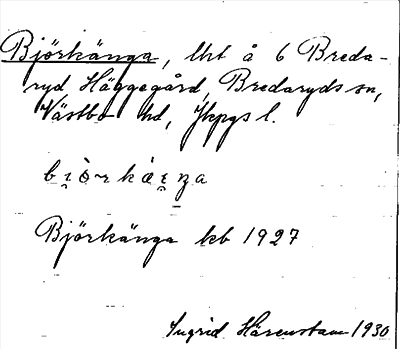 Björkänga, lht å 6 Breda-
ryd Häggegård, Bredaryds sn,
Västbo hd, Jkpgs l.
Björkänga kb 1927
Ingrid Härenstam 1930